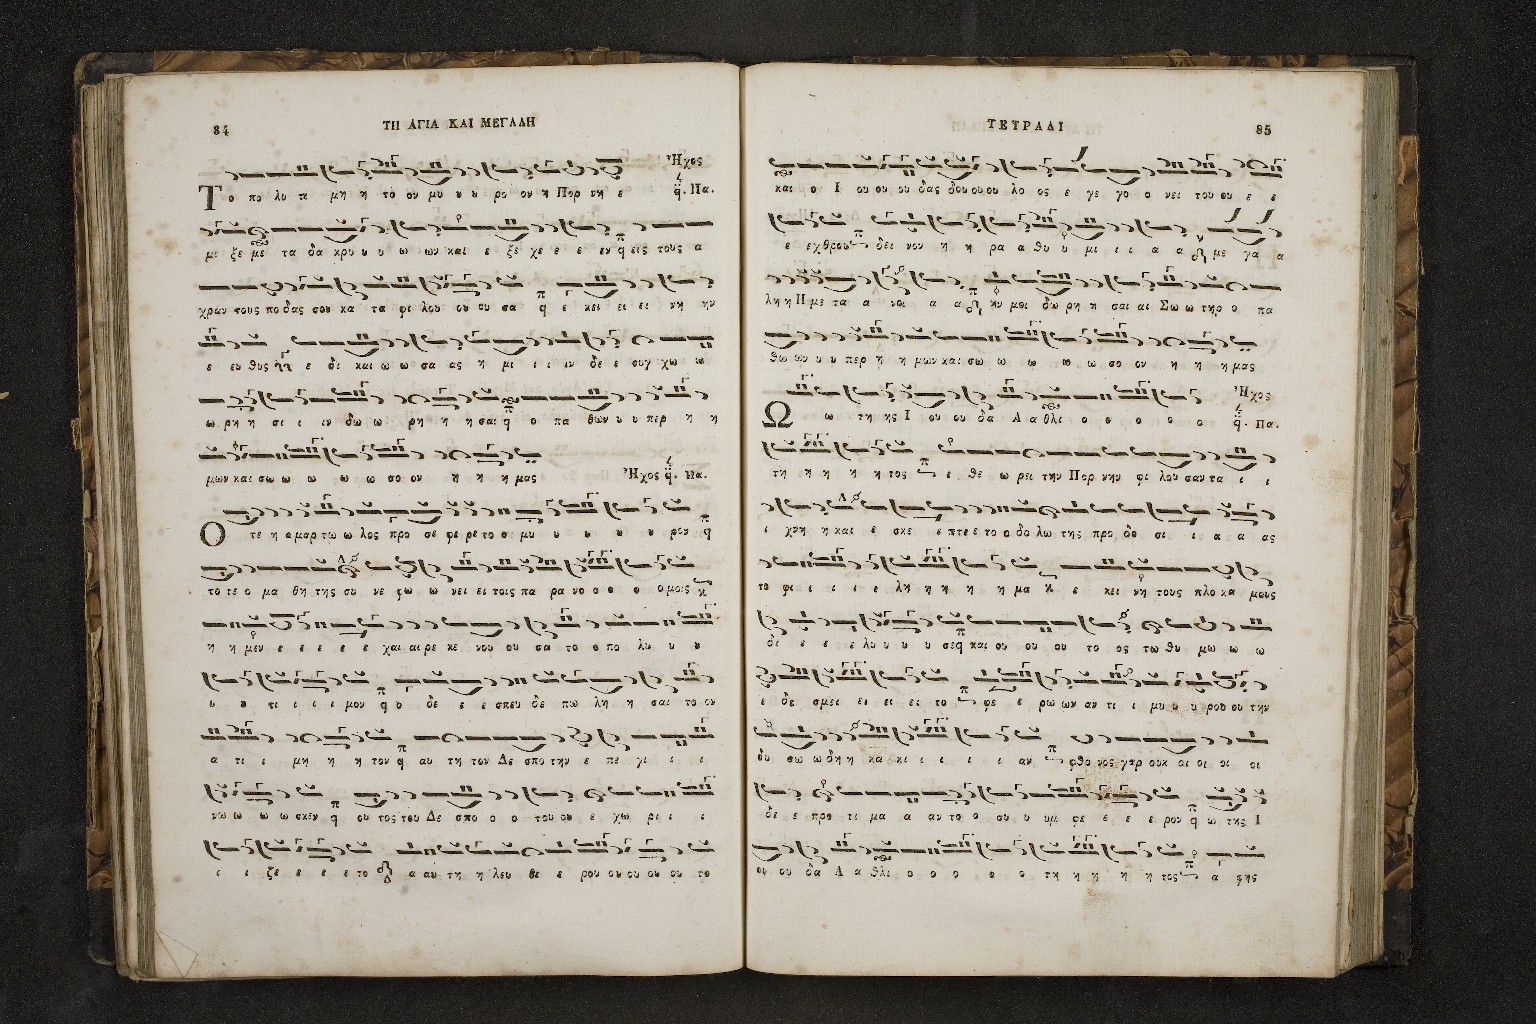 84
ΤΗ ΑΓΙΑ ΚΑΙ ΜΕΓΑΛΗ
Ἦχος
Το πο λυ τι μη η το ον μυ υ υ ρο ον η Πορ νη ε q̈. Πα.
μι ξε με τα δα κρυ υ υ ω ων και ε ξε χε ε ε εν q εις τους α
χραν τους πο δας σου κα τα φι λου ου ου σα q ε κει ει ει νη ην
ε ευ θυς ε δι και ω ω σα ας η μι ι ιν δε ε συγ χω ω
ω ρη η σι ι ιν δω ω ρη η η σαι q ο πα θων υ υ περ η η
μων και σω ω ω ω ω σο ον η η η μας Ἦχος q̈. Πα.
Ο τε η α μαρ τω ω λος προ σε φε ρε το ο μυ υ υ υ υ υ ρον q
το τε ο μα θη της συ νε φω ω νει ει τοις πα ρα νο ο ο ο ο μοις
η η μεν ε ε ε ε ε χαι αι ρε κε νου ου σα το ο πο λυ υ υ
υ υ τι ι ι ι μον q ο δε ε ε σπευ δε πω λη η σαι το ον
α τι ι μη η η τον q αυ τη τον Δε σπο την ε πε γι ι ι
νω ω ω ω σκεν q ου τος του Δε σπο ο ο του ου ε χω ρι ι ι
ι ι ζε ε ε ε το α αυ τη η λευ θε ε ρου ου ου ου ου το
ΤΕΤΡΑΔΙ
85
και ο Ι ου ου ου δας δου ου ου λο ος ε γε γο ο νει του ου ε ε
ε εχθρου δει νον η η ρα α θυ υ μι ι ι α α με γα α
λη η Η με τα α νοι α α ην μοι δω ρη η σαι αι Σω ω τηρ ο πα
θω ων υ υ περ η η μων και σω ω ω ω ω σο ον η η η μας
Ἦχος
Ω ω τη ης Ι ου ου δα Α α θλι ο ο ο ο ο q̈. Πα.
τη η η η η τος ε θε ω ρει την Πορ νην φι λου σαν τα ι ι
ι χνη η και ε σκε ε πτε ε το ο δο λω της προ δο σι ι α α ας
το φι ι ι ι ε λη η η η η μα κ ε κει νη τους πλο κα μους
δι ε ε ε λυ υ υ υ σε q και ου ου ου το ος τω θυ μω ω ω
ε δε σμει ει ει ει ει το φε ε ρω ων αν τι ι μυ υ υ ρου ου την
δυ σω ω δη η κα κι ι ι ι ι αν φθο νος γαρ ουκ οι οι οι οι
δε ε προ τι μα α αν το ο συ υ υμ φε ε ε ε ρον q ω της Ι
ου ου δα Α α θλι ο ο ο ο ο τη η η η η τος α φης